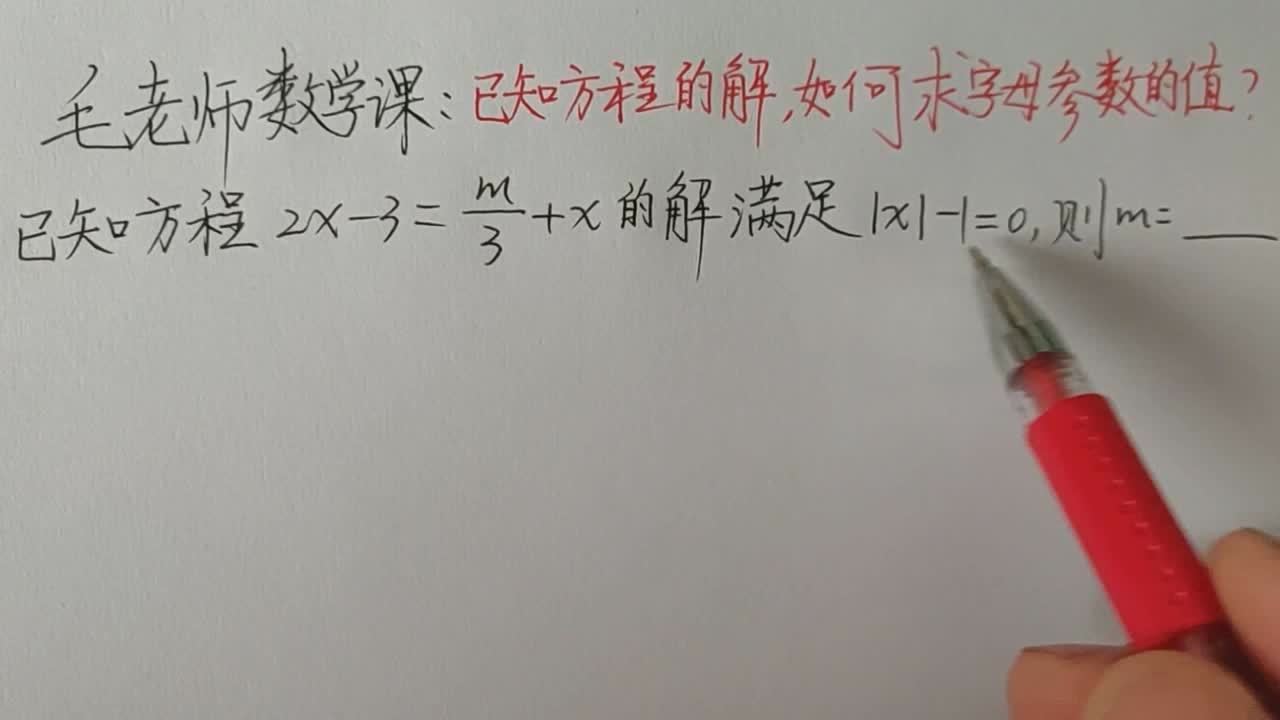 毛老师数学课:已知方程的解,如何求字母参数的值?
已知方程 2x-3=m/3+x 的解满足|x|-1=0,则m=___